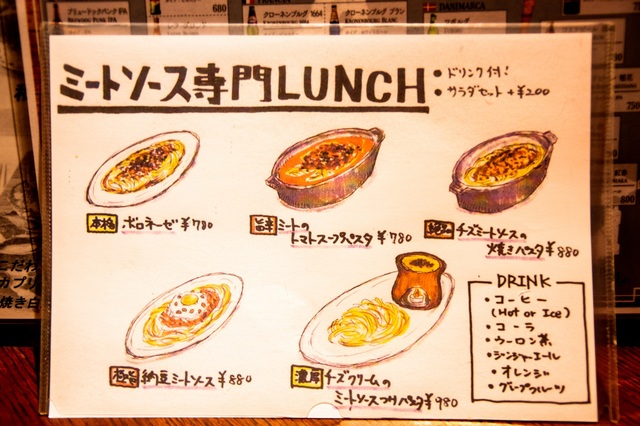 ブリュードックパンクIPA
680
クローネンブルグ 1664
クローネンブルグ ブラン
DANIMARCA
ミートソース専門LUNCH
・ドリンク付!
・サラダセット +¥200
本格 ボロネーゼ ¥780
旨辛 ミートの
トマトスープパスタ ¥780
チーズミートソースの
焼きパスタ ¥880
極旨 納豆ミートソース ¥880
濃厚 チーズクリームの
ミートソースつけパスタ ¥980
DRINK
・コーヒー
(Hot or Ice)
・コーラ
・ウーロン茶
・ジンジャーエール
・オレンジ
・グレープフルーツ
こだわ
カプリ
焼き白